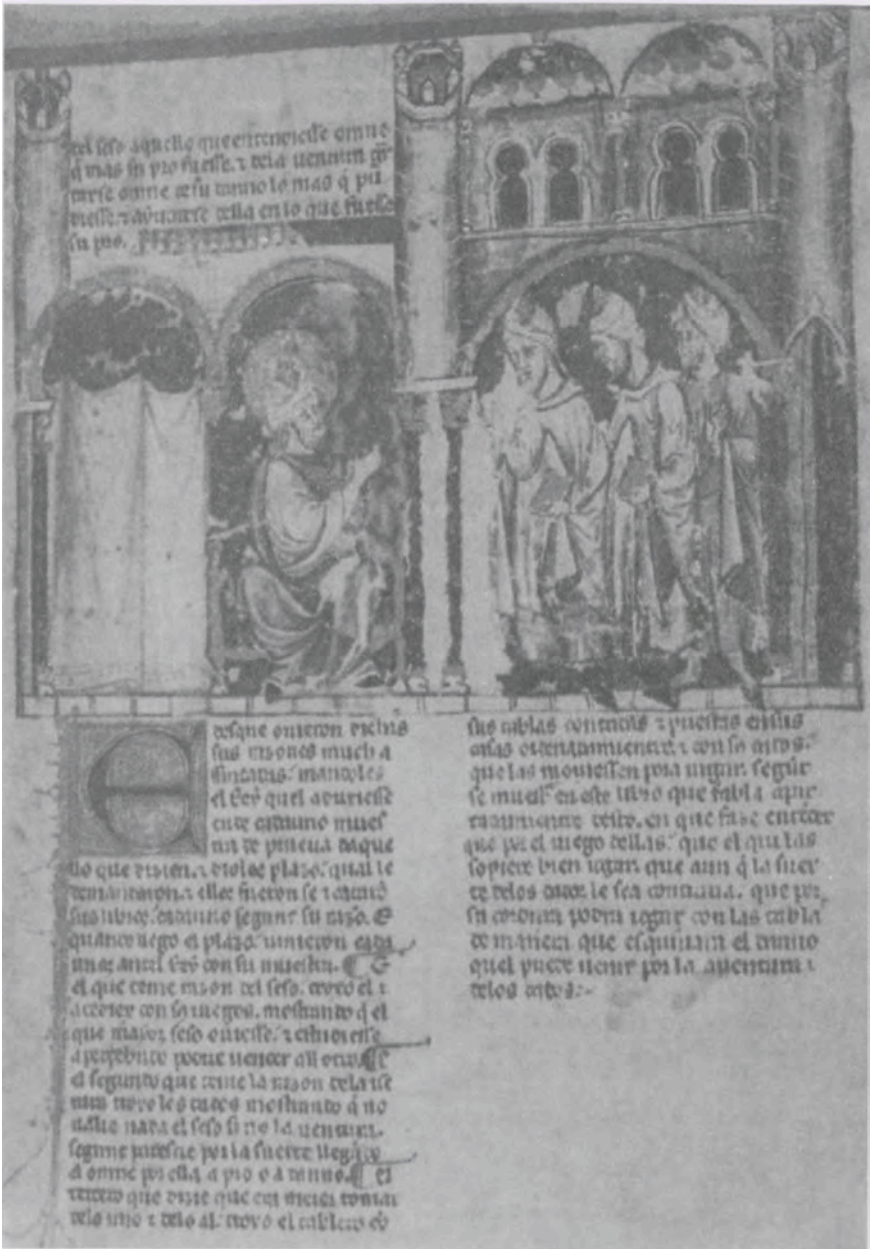 del seso aquello que entendiesse omne
q̃ mas su pro fuesse. ⁊ dela uentura gũ
darse omne de su danno lo mas q̃ pu
diesse. ⁊ ayudarse della en lo que fuesse
su pro.
E
desque ouieron dichas
sus razones much a
fincadas. mandoles
el Rey quel aduxiesse
ende cadauno mues
tra de prueua daque
llo que dizien. ⁊ dioles plazo. qual le
demandaron. ⁊ ellos fueron se ⁊ cataro
sus libros. cadauno segunt su razo. E
quando llego el plazo. uinieron cada
unos antel Rey con su muestra. ¶ E
el que tenie razon del seso. troxo el a
acedrex con sꝰ iuegos. mostrando q̃ el
que mayor seso ouiesse. ⁊ estudiesse
aꝑcebudo podrie uencer all otro. ¶ E
el segundo que tenie la razon dela ue
tura troxo los dados mostrando q̃ no
ualie nada el seso si no la uentura.
segunt parescie por la suerte llegado
el omne por ella a pro o a danno. ¶ El
tercero que dizie que era meior tomar
delo uno ⁊ delo al. troxo el tablero cõ
sus tablas contadas ⁊ puestas en sus
casas ordenadamientre. ⁊ con sꝰ dados.
que las mouiessen pora iugar. segũt
se muestˢ en este libro que fabla apar
tadamientre desto. en que faze entẽder
que por el iuego dellas. que el qui las
sopiere bien iogar. que aun q̃ la suer
te delos dados le sea contraria. que por
su cordura podra iogar con las tabla
de manera que esquiuara el danno
quel puede uenir por la auentura ⁊
delos dados:-